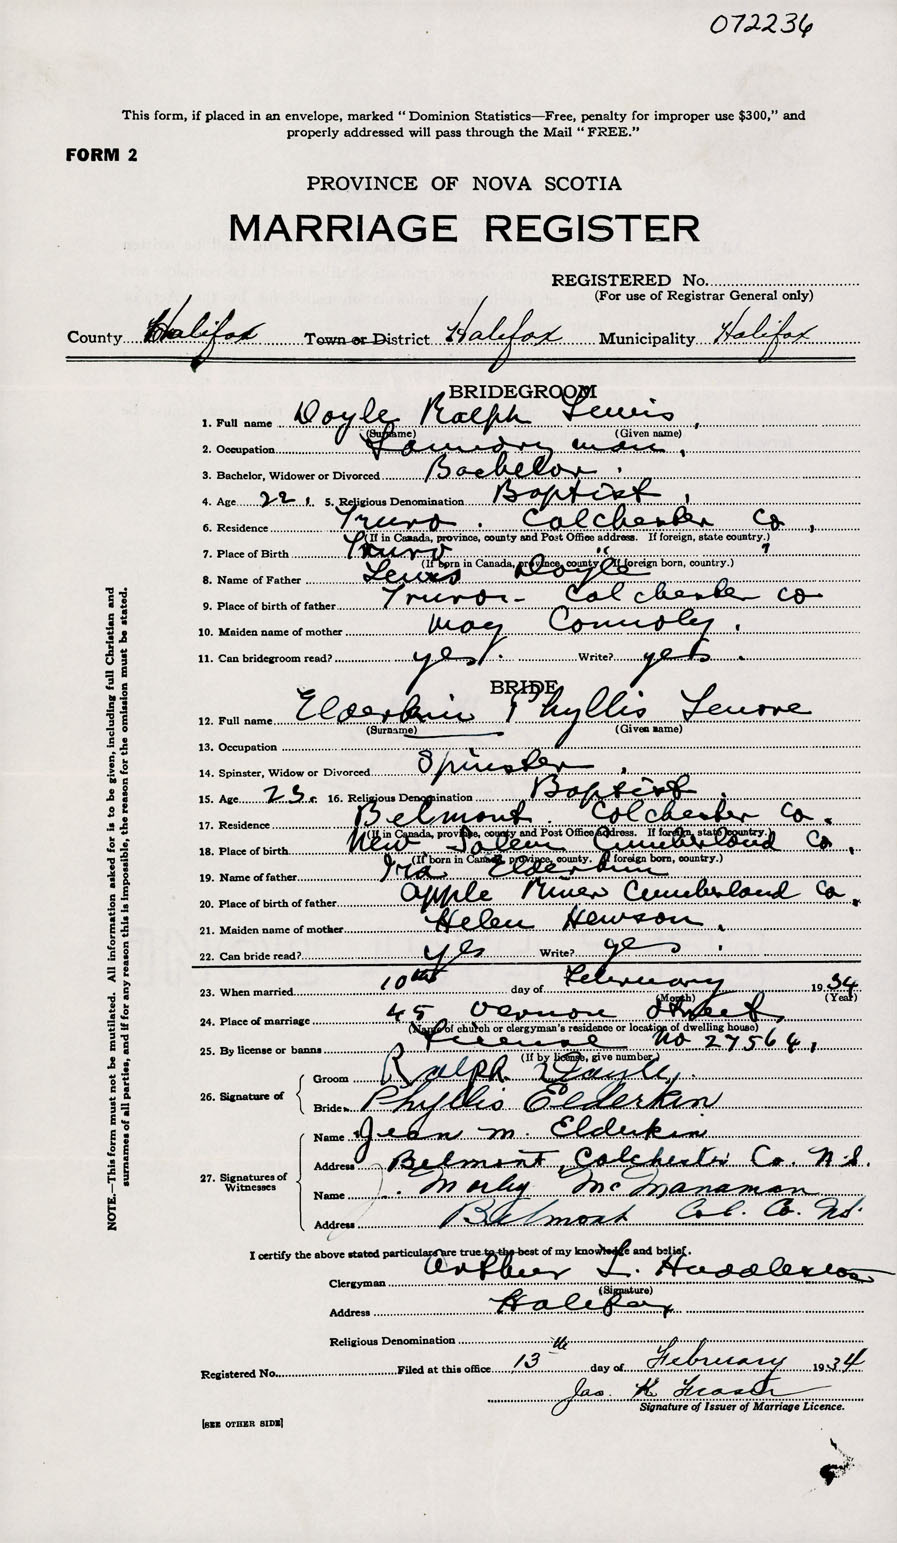 072236
This form, if placed in an envelope, marked "Dominion Statistics—Free, penalty for improper use $300," and
properly addressed will pass through the Mail "FREE."
FORM 2
PROVINCE OF NOVA SCOTIA
MARRIAGE REGISTER
REGISTERED No.
(For use of Registrar General only)
County Halifax Town or District Halifax Municipality Halifax
BRIDEGROOM
1. Full name Doyle Ralph Lewis
(Surname) (Given name)
2. Occupation Laundry man
3. Bachelor, Widower or Divorced Bachelor.
4. Age 22 5. Religious Denomination Baptist
6. Residence Truro. Colchester Co
(If in Canada, province, county and Post Office address. If foreign, state country.)
7. Place of Birth Truro " "
(If born in Canada, province, county. If foreign born, country.)
8. Name of Father Lewis Doyle
9. Place of birth of father Truro - Colchester Co
10. Maiden name of mother May Connoly.
11. Can bridegroom read? yes. Write? yes.
BRIDE
12. Full name Elderkin Phyllis Lenore
(Surname) (Given name)
13. Occupation
14. Spinster, Widow or Divorced Spinster
15. Age 23 16. Religious Denomination Baptist.
17. Residence Belmont. Colchester Co.
(If in Canada, province, county and Post Office address. If foreign, state country.)
18. Place of birth New Salem Cumberland Co.
(If born in Canada, province, county. If foreign born, country.)
19. Name of father Ira Elderkin
20. Place of birth of father Apple River Cumberland Co.
21. Maiden name of mother Helen Hewson.
22. Can bride read? yes Write? yes.
23. When married 10th day of February 1934
(Month) (Year)
24. Place of marriage 45 Vernon Street,
(Name of church or clergyman's residence or location of dwelling house)
25. By license or banns License No 27564,
(If by license, give number)
26. Signature of
Groom Ralph Doyle.
Bride Phyllis Elderkin
27. Signatures of Witnesses
Name Jean M. Elderkin
Address Belmont, Colchester Co. N.S.
Name Morley McManaman
Address Belmont Col. Co. N.S.
I certify the above stated particulars are true to the best of my knowledge and belief.
Clergyman Arthur L. Huddleston
(Signature)
Address Halifax
Religious Denomination
Registered No. Filed at this office 13th day of February 1934
Jas. K Fraser
Signature of Issuer of Marriage Licence.
[SEE OTHER SIDE]
NOTE.—This form must not be mutilated. All information asked for is to be given, including full Christian and
surnames of all parties, and if for any reason this is impossible, the reason for the omission must be stated.